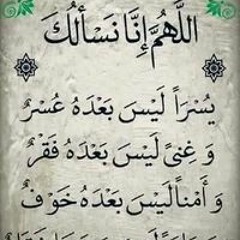 اللَّهُمَّ إِنَّا نَسْأَلُكَ
يُسْرَاً لَيْسَ بَعْدَهُ عُسْرٌ
وَ غِنىً لَيْسَ بَعْدَهُ فَقْرٌ
وَ أَمْناً لَيْسَ بَعْدَهُ خَوْفٌ